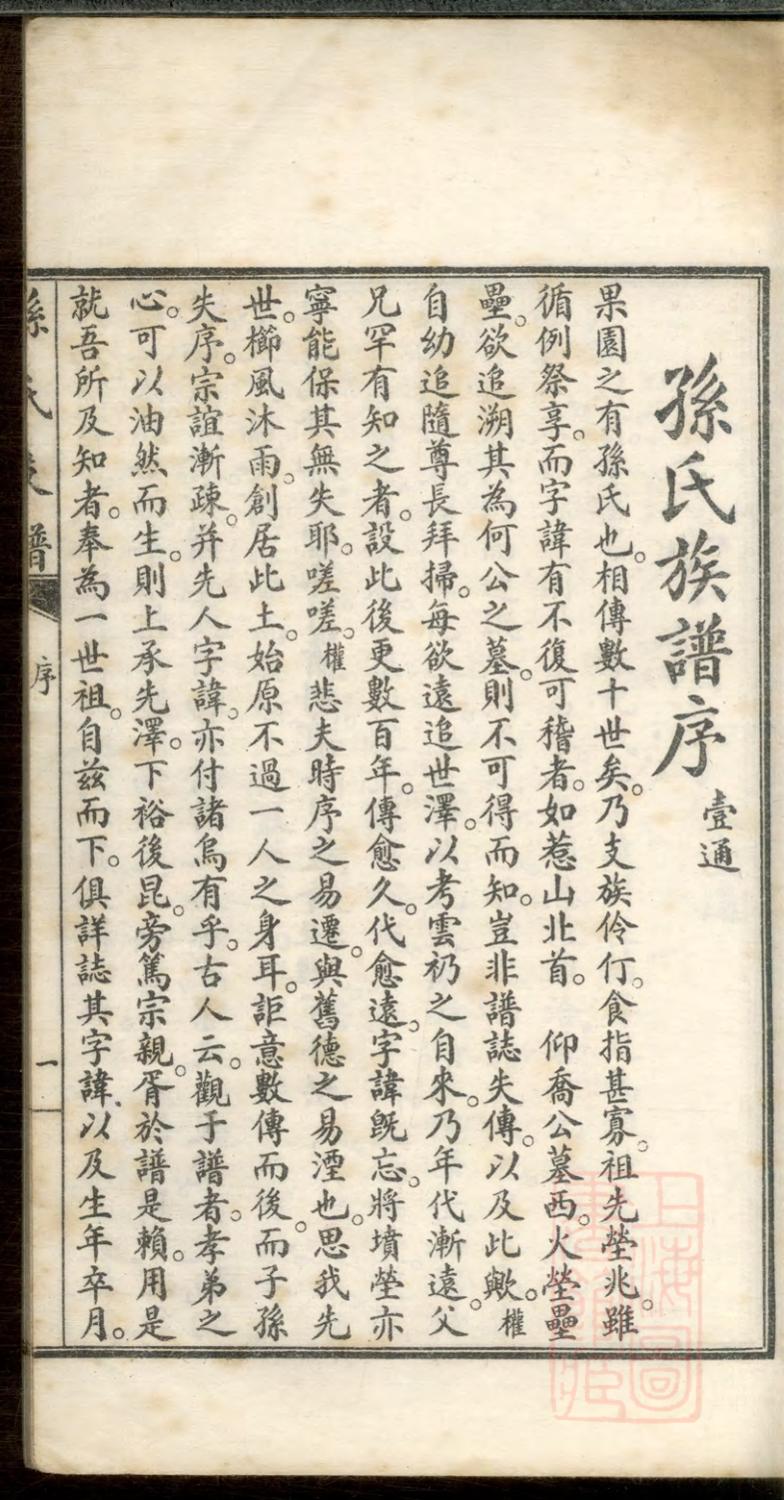 孫氏族譜序
壹通
果園之有孫氏也。相傳數十世矣。乃支族伶仃。食指甚寡。祖先塋兆。雖
循例祭享。而字諱有不復可稽者。如惹山北首。仰喬公墓西。火塋壘
壘。欲追溯其為何公之墓。則不可得而知。豈非譜誌失傳。以及此歟。權
自幼追隨尊長拜掃。每欲遠追世澤。以考雲礽之自來。乃年代漸遠。父
兄罕有知之者。設此後更數百年。傳愈久。代愈遠。字諱既忘。將墳塋亦
寧能保其無失耶。嗟嗟。權悲夫時序之易遷。與舊德之易湮也。思我先
世。櫛風沐雨。創居此土。始原不過一人之身耳。詎意數傳而後。而子孫
失序。宗誼漸疎。并先人字諱。亦付諸烏有乎。古人云。觀于譜者。孝弟之
心。可以油然而生。則上承先澤。下裕後昆。旁篤宗親。胥於譜是賴。用是
就吾所及知者。奉為一世祖。自茲而下。俱詳誌其字諱、以及生年卒月。
孫氏支譜
序
一
上海圖書館藏